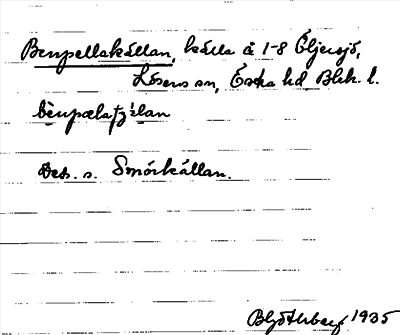 Benpellakällan, källa å 1-8 Öljersjö,
Lösens sn, Östra hd, Blek. l.
Dets. s. Smörkällan.
1935